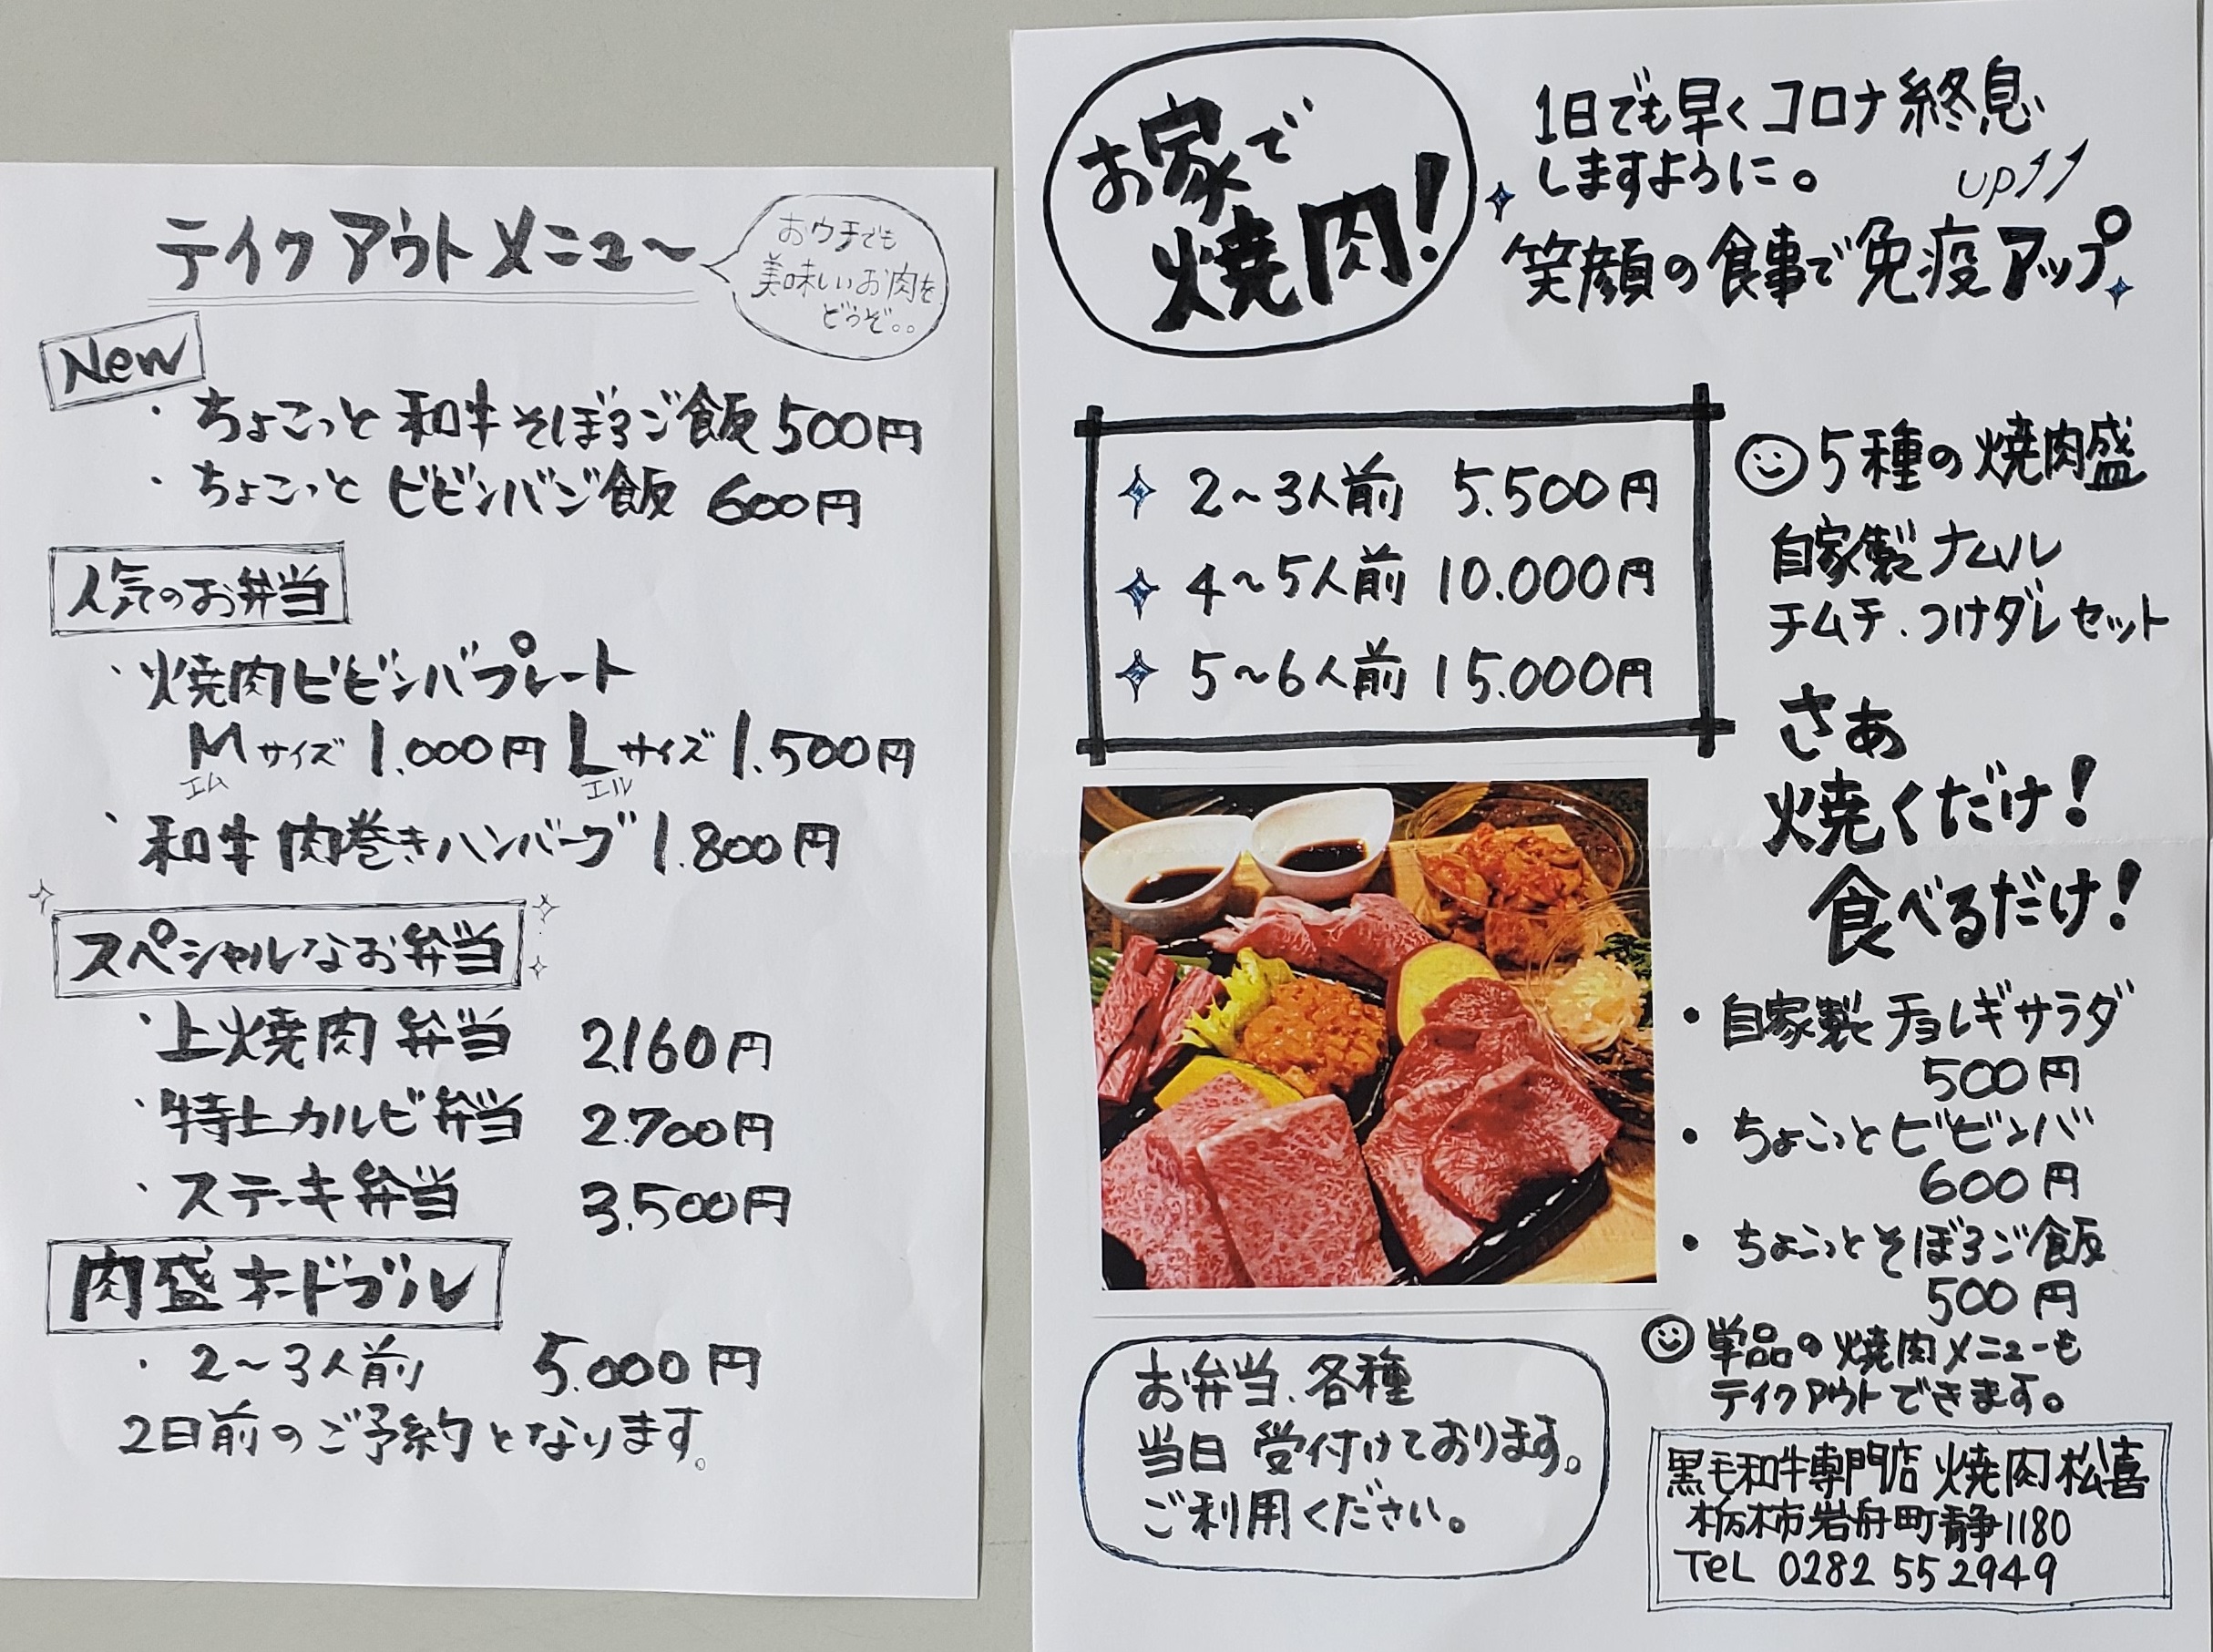 テイクアウトメニュー
おウチでも
美味しいお肉を
どうぞ。。
New
・ちょこっと和牛そぼろご飯 500円
・ちょこっとビビンバご飯 600円
人気のお弁当
・焼肉ビビンバプレート
Mサイズ 1.000円 Lサイズ 1.500円
エム エル
・和牛肉巻きハンバーグ 1.800円
スペシャルなお弁当
・上焼肉弁当 2160円
・特上カルビ弁当 2.700円
・ステーキ弁当 3.500円
肉盛オードブル
・2〜3人前 5.000円
2日前のご予約となります。
お家で
焼肉!
1日でも早くコロナ終息
しますように。
up↑↑
笑顔の食事で免疫アップ
2〜3人前 5.500円
4〜5人前 10.000円
5〜6人前 15.000円
5種の焼肉盛
自家製ナムル
チムチ、つけダレセット
さあ
焼くだけ!
食べるだけ!
・自家製チョレギサラダ
500円
・ちょこっとビビンバ
600円
・ちょこっとそぼろご飯
500円
単品の焼肉メニューも
テイクアウトできます。
お弁当、各種
当日受付けております。
ご利用ください。
黒毛和牛専門店 焼肉松喜
栃木市岩舟町静1180
TeL 0282 55 2949